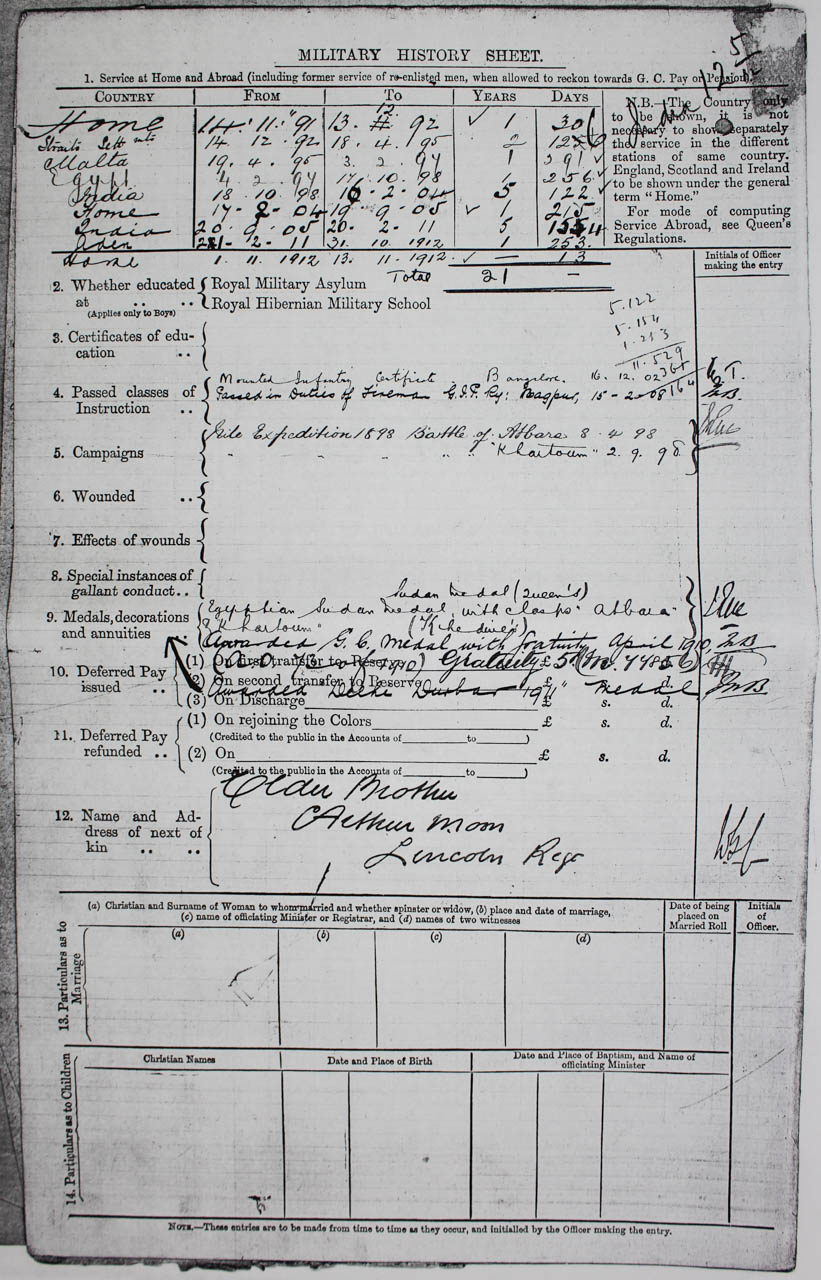 MILITARY HISTORY SHEET.
1. Service at Home and Abroad (including former service of re-enlisted men, when allowed to reckon towards G. C. Pay or Pension).
COUNTRY FROM TO YEARS DAYS
Home 14. 11. 91 13. 12. 92 1 30
Straits Settmts 14. 12. 92 18. 4. 95 2
Malta 19. 4. 95 3. 2. 97 1 291
Egypt 4. 2. 97 17. 10. 98 1 256
India 18. 10. 98 16-2-04 5 122
Home 17-2-04 19. 9-05 1 215
India 20. 9. 05 20-2-11 5 154
Aden 21-2-11 31. 10. 1912 1 253
Home 1. 11. 1912 13. 11. 1912 — 13
Total 21 —
N.B.—The Country only
to be shown, it is not
necessary to show separately
the service in the different
stations of same country.
England, Scotland and Ireland
to be shown under the general
term "Home."
For mode of computing
Service Abroad, see Queen's
Regulations.
Initials of Officer
making the entry
2. Whether educated at (Applies only to Boys)
Royal Military Asylum
Royal Hibernian Military School
5.122
5.154
1.253
11.529
365
164
3. Certificates of education
4. Passed classes of Instruction
Mounted Infantry Certificate, Bangalore. 16. 12. 02
Passed in Duties of Fireman G.I.P. Ry: Nagpur, 15-2-08
5. Campaigns
Nile Expedition 1898 Battle of Atbara 8. 4 98
" " " " " "Khartoum" 2. 9. 98
6. Wounded
7. Effects of wounds
8. Special instances of gallant conduct
Sudan medal (Queen's)
9. Medals, decorations and annuities
Egyptian Sudan medal, with clasps "Atbara"
& Khartoum" (Khedive's)
Awarded G. C. Medal with gratuity April 1910
Gratuity £5
Awarded Delhi Durbar 1911" Medal
10. Deferred Pay issued
(1) On first transfer to Reserve
(2) On second transfer to Reserve £ s. d.
(3) On Discharge £ s. d.
11. Deferred Pay refunded
(1) On rejoining the Colors £ s. d.
(Credited to the public in the Accounts of to )
(2) On £ s. d.
(Credited to the public in the Accounts of to )
12. Name and Address of next of kin
Elder Brother
Arthur Moon
Lincoln Regt
(a) Christian and Surname of Woman to whom married and whether spinster or widow, (b) place and date of marriage,
(c) name of officiating Minister or Registrar, and (d) names of two witnesses
Date of being placed on Married Roll
Initials of Officer.
13. Particulars as to Marriage
(a) (b) (c) (d)
14. Particulars as to Children
Christian Names Date and Place of Birth Date and Place of Baptism, and Name of officiating Minister
NOTE.—These entries are to be made from time to time as they occur, and initialled by the Officer making the entry.